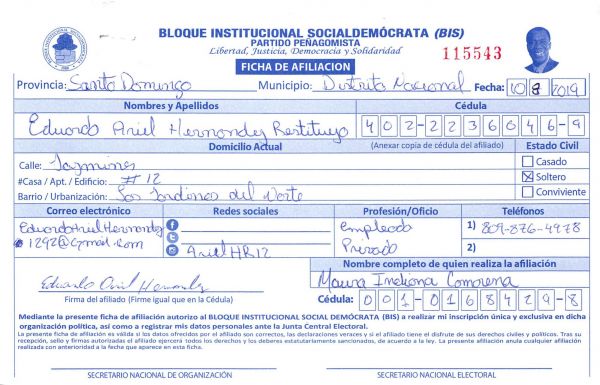 BLOQUE INSTITUCIONAL SOCIALDEMÓCRATA (BIS)
PARTIDO PEÑAGOMISTA
Libertad, Justicia, Democracia y Solidaridad
115543
FICHA DE AFILIACION
Provincia: Santo Domingo Municipio: Distrito Nacional Fecha: 10 8 2019
Nombres y Apellidos Cédula
Eduardo Ariel Hernandez Restituyo 402-2236046-9
Domicilio Actual (Anexar copia de cédula del afiliado) Estado Civil
Calle: Jazmines Casado
#Casa / Apt. / Edificio: #12 Soltero
Barrio / Urbanización: Los Jardines del Norte Conviviente
Correo electrónico Redes sociales Profesión/Oficio Teléfonos
EduardoArielHernandez Empleado 1) 809-876-4978
1292@Gmail.com ArielHR12 Privado 2)
Nombre completo de quien realiza la afiliación
Maura
Firma del afiliado (Firme igual que en la Cédula) Cédula: 001-0168429-8
Mediante la presente ficha de afiliación autorizo al BLOQUE INSTITUCIONAL SOCIAL DEMÓCRATA (BIS) a realizar mi inscripción única y exclusiva en dicha
organización política, así como a registrar mis datos personales ante la Junta Central Electoral.
La presente ficha de afiliación es válida si los datos ofrecidos por el afiliado son correctos, las declaraciones veraces y si el afiliado tiene el disfrute de sus derechos civiles y políticos. Tras su
recepción, sello y firmas autorizadas el afiliado ejercerá todos los derechos y los deberes estatutariamente sancionados, de acuerdo a la ley. La presente afiliación anula cualquier afiliación
realizada con anterioridad a la fecha que aparece en esta ficha.
SECRETARIO NACIONAL DE ORGANIZACIÓN SECRETARIO NACIONAL ELECTORAL